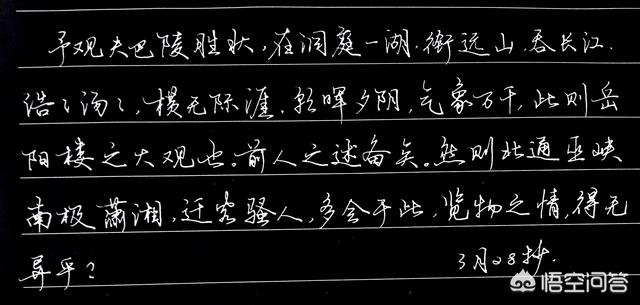 予观夫巴陵胜状，在洞庭一湖．衔远山．吞长江．
浩々汤々，横无际涯．朝晖夕阴，气象万千，此则岳
阳楼之大观也。前人之述备矣。然则北通巫峡
南极潇湘，迁客骚人，多会于此，览物之情，得无
异乎？
3月28抄．
悟空问答